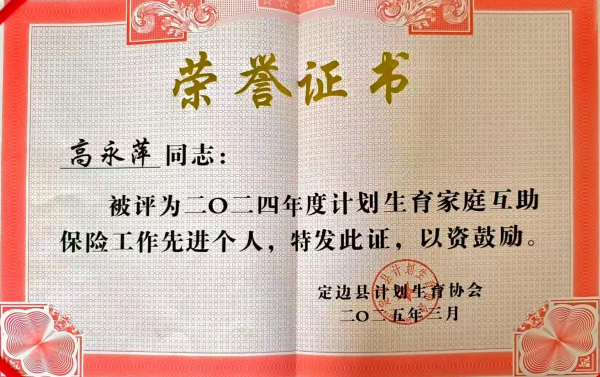 荣誉证书
高永萍 同志：
被评为二〇二四年度计划生育家庭互助
保险工作先进个人，特发此证，以资鼓励。
定边县计划生育协会
二〇二五年三月